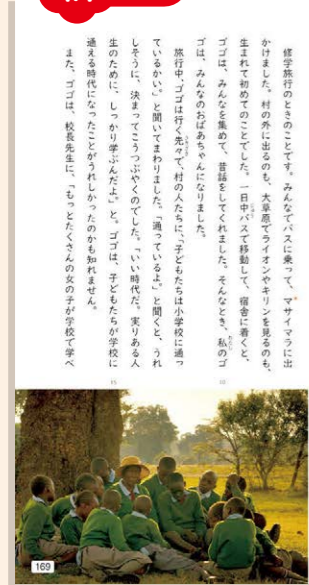 修学旅行のときのことです。みんなでバスに乗って、マサイマラに出
かけました。村の外に出るのも、大草原でライオンやキリンを見るのも、
生まれて初めてのことでした。一日中バスで移動して、宿舎に着くと、
ゴゴは、みんなを集めて、昔話をしてくれました。そんなとき、私のゴ
ゴは、みんなのおばあちゃんになりました。
旅行中、ゴゴは行く先々で、村の人たちに、「子どもたちは小学校に通っ
ているかい。」と聞いてまわりました。「通っているよ。」と聞くと、うれ
しそうに、決まってこうつぶやくのでした。「いい時代だ。実りある人
生のために、しっかり学ぶんだよ。」と。ゴゴは、子どもたちが学校に
通える時代になったことがうれしかったのかも知れません。
また、ゴゴは、校長先生に、「もっとたくさんの女の子が学校で学べ
169